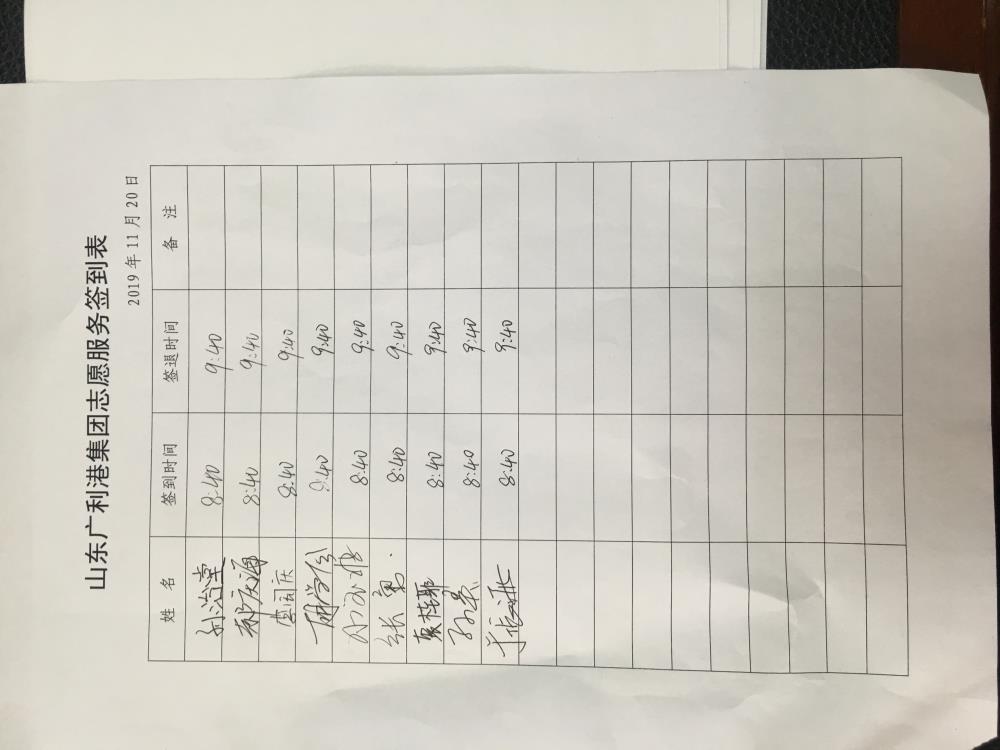 山东广利港集团志愿服务签到表
2019 年 11 月 20 日
姓 名 签到时间 签退时间 备 注
孙治堂 8:40 9:40
郝庆海 8:40 9:40
8:40 9:40
胡学信 8:40 9:40
8:40 9:40
张勇 8:40 9:40
袁桂耶 8:40 9:40
孙景 8:40 9:40
8:40 9:40